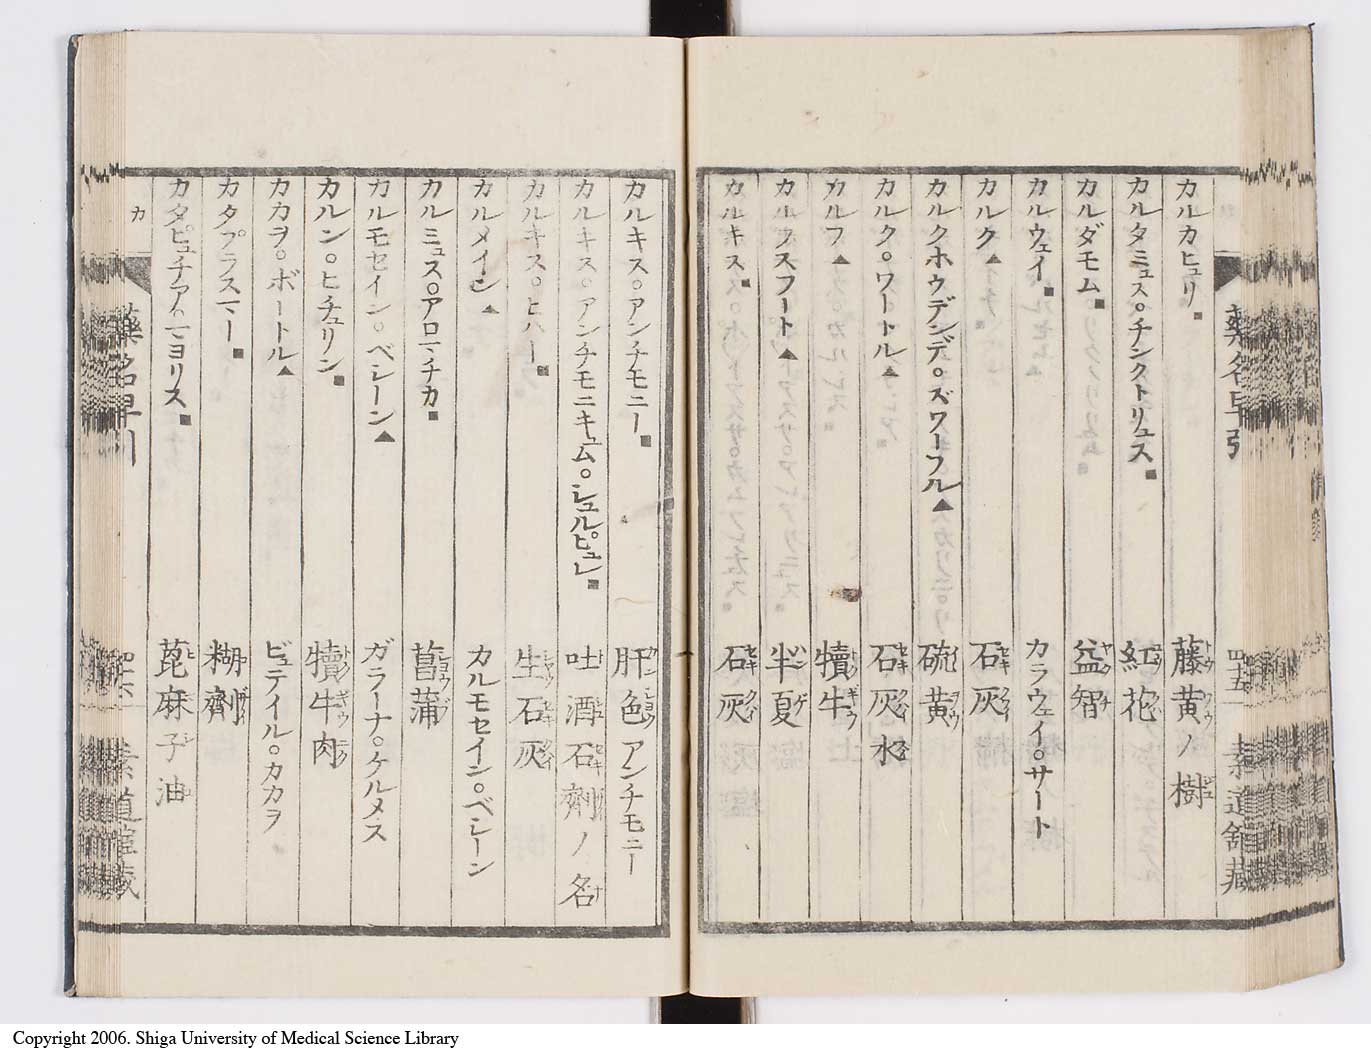 藥名早引
四十五
素道館藏
カルカヒュリ。■ 藤黄ノ樹
カルタミュス。チンクトリュス■ 紅花
カルダモム■ 益智
カルウェイ■ カラウェイ。サート
カルク▲ 石灰
カルクホウデンデ。ズワーフル▲ 硫黄
カルク。ワートル▲ 石灰水
カルフ▲ 犢牛
カルフスフート▲ 半夏
カルキス■ 石灰
カルキス。アンチモニー■ 肝色アンチモニー
カルキス。アンチモニキュム。シュルピュレ■ 吐酒石劑ノ名
カルキス。ヒハー■ 生石灰
カルメイン▲ カルモセイン。ベシーン
カルミュス。アロマチカ■ 菖蒲
カルモセイン。ベシーン▲ ガラーナ。ケルメス
カルン。ヒチュリン■ 犢牛肉
カカヲ。ボートル▲ ビュテイル。カカヲ
カタプラスマー■ 糊劑
カタピュチア。マヨリス■ 萞麻子油
カ
藥名早引
四十六
Copyright 2006. Shiga University of Medical Science Library